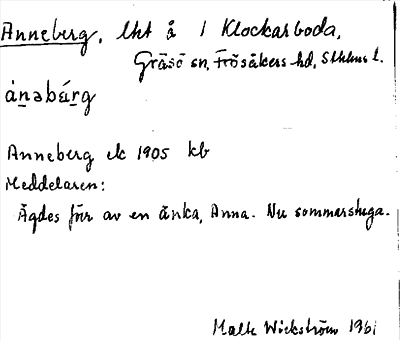 Anneberg, lht å 1 Klockarboda,
Gräsö sn, Frösåkers hd, Sthlms l.
ánəbærg
Anneberg elc 1905 kb
Meddelaren:
Ägdes förr av en änka, Anna. Nu sommarstuga.
Malte Wickström 1961